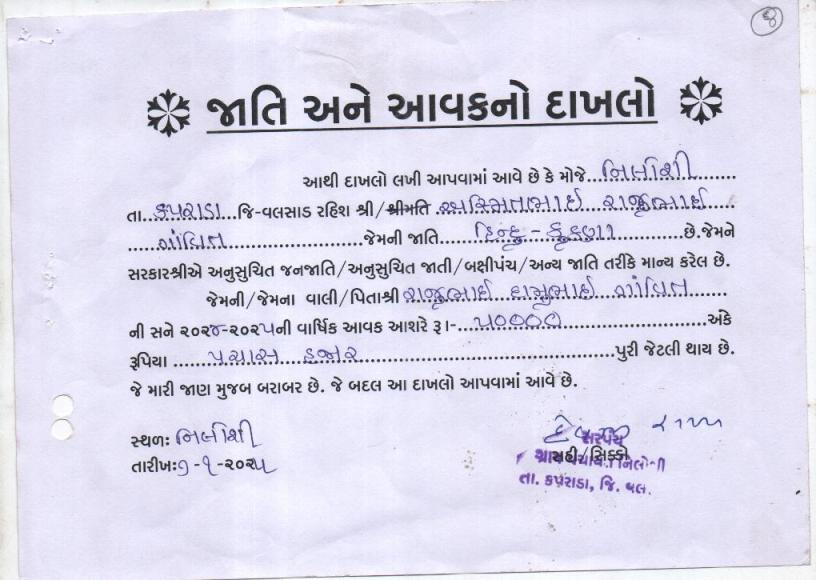 ૪
જાતિ અને આવકનો દાખલો
આથી દાખલો લખી આપવામાં આવે છે કે મોજે નિલોશી
તા. કપરાડા જિ-વલસાડ રહિશ શ્રી/શ્રીમતિ અસ્મિતાભાઈ રાજુભાઈ
ગાંવિત જેમની જાતિ હિન્દુ - કુકણા છે.જેમને
સરકારશ્રીએ અનુસુચિત જનજાતિ/અનુસુચિત જાતી/બક્ષીપંચ/અન્ય જાતિ તરીકે માન્ય કરેલ છે.
જેમની/જેમના વાલી/પિતાશ્રી રાજુભાઈ દામુભાઈ ગાંવિત
ની સને ૨૦૨૪-૨૦૨૫ની વાર્ષિક આવક આશરે રૂા.- ૫૦૦૦૦ અંકે
રૂપિયા પચાસ હજાર પુરી જેટલી થાય છે.
જે મારી જાણ મુજબ બરાબર છે. જે બદલ આ દાખલો આપવામાં આવે છે.
સ્થળઃ નિલોશી
તારીખઃ ૭-૧-૨૦૨૫
સરપંચ
સહી/સિક્કો
તા. કપરાડા, જિ. વલ.